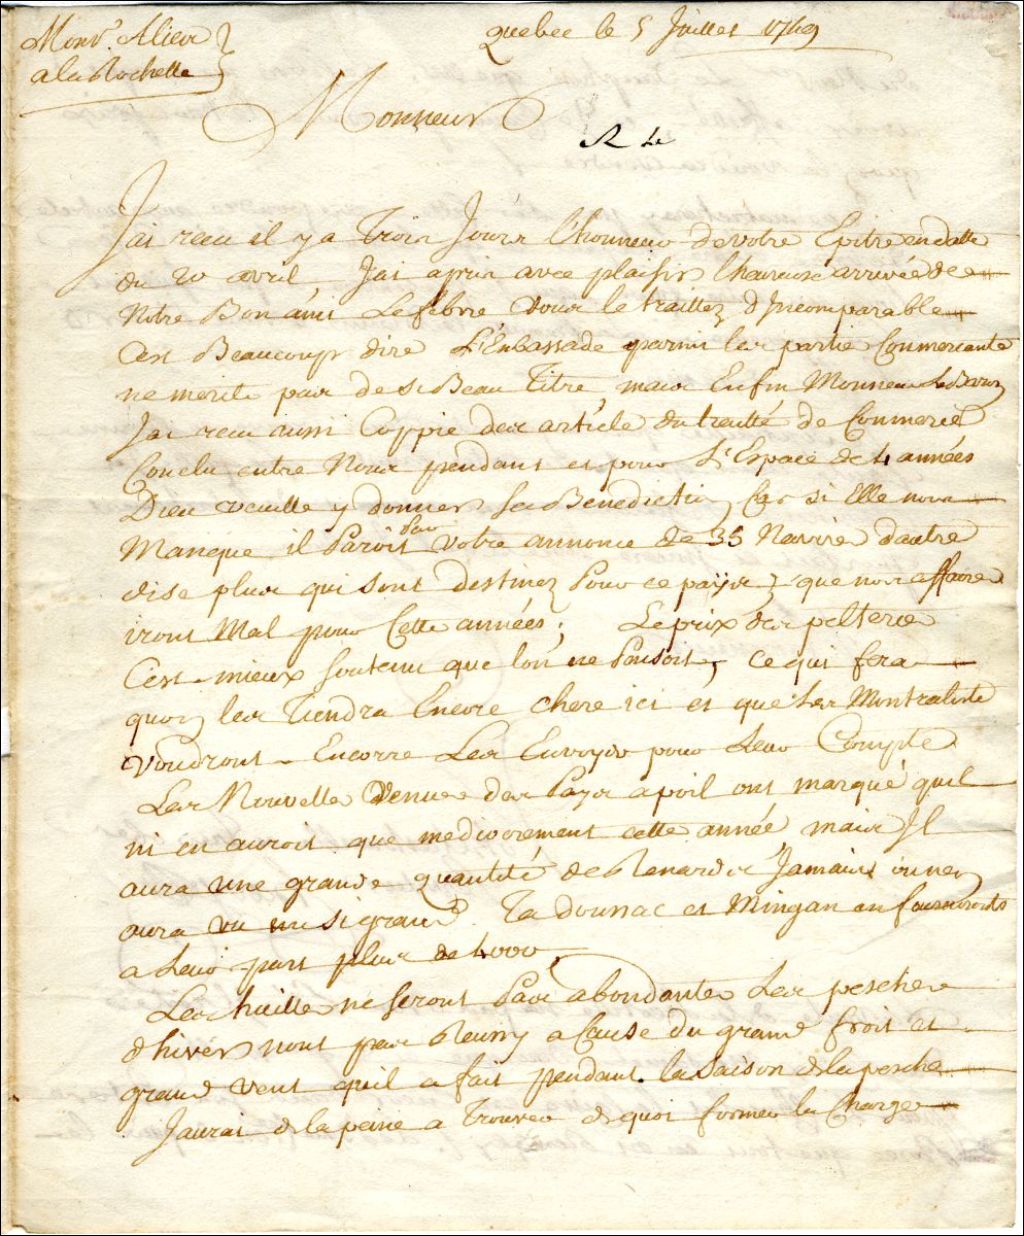 Monsr. Aliew
a la Rochelle
Quebec le 5 Juillet 1749
Monsieur
R le
J'ai receu il y a trois Jours l'honneur de votre Epitre en datte
du 20 avril, J'ai apris avec plaisir l'heureuse arrivée de
Notre Bon ami Lefebvre vous le traittez d'Incomparable
C'est Beaucoup dire L'Enbassade parmi les partie Commercante
ne merite pas de si Beau Titre, mais Enfin Monsieur
J'ai receu aussi Coppie des article du traitté de Commerce
Conclu entre Nous pendant et pour L'Espace de 4 années
Dieu veuille y donner sa Benediction, Car si Elle nous
Manque il Paroit par votre annonce de 35 Navire d'autre
dise plus qui sont destinez Pour ce païs, que nos affaire
iront Mal pour Cette années; Le prix des pelterie
C'est mieux soutenu que l'on ne Pensoit, ce qui fera
quon les Tiendra Encore chere ici et que Les Montraliste
Voudront Encorre Les Envoyer pour Leur Compte
Les Nouvelle Venue des Pays apoil ont marqué quil
ni en auroit que mediocrement cette année mais Il
aura une grande quantité de Renards Jamais on nen
aura vu un si grand Tadousac et Mingan en fourniront
a Leur part plus de 4000
Les huille ne seront Pas abondante Les pesche
d'hiver nont pas Reussy a Cause du grand froit et
grand vent quil a fait pendant la Saison de la pesche
J'aurai de la peine a trouver de quoi former la Charge